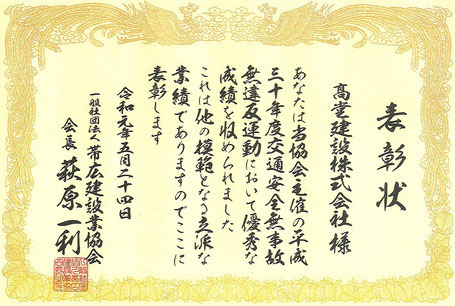 表彰状
髙堂建設株式会社様
あなたは当協会主催の平成
三十年度交通安全無事故
無違反運動において優秀な
成績を収められました
これは他の模範となる立派な
業績でありますのでここに
表彰します
令和元年五月二十四日
一般社団法人帯広建設業協会
会長 萩原一利